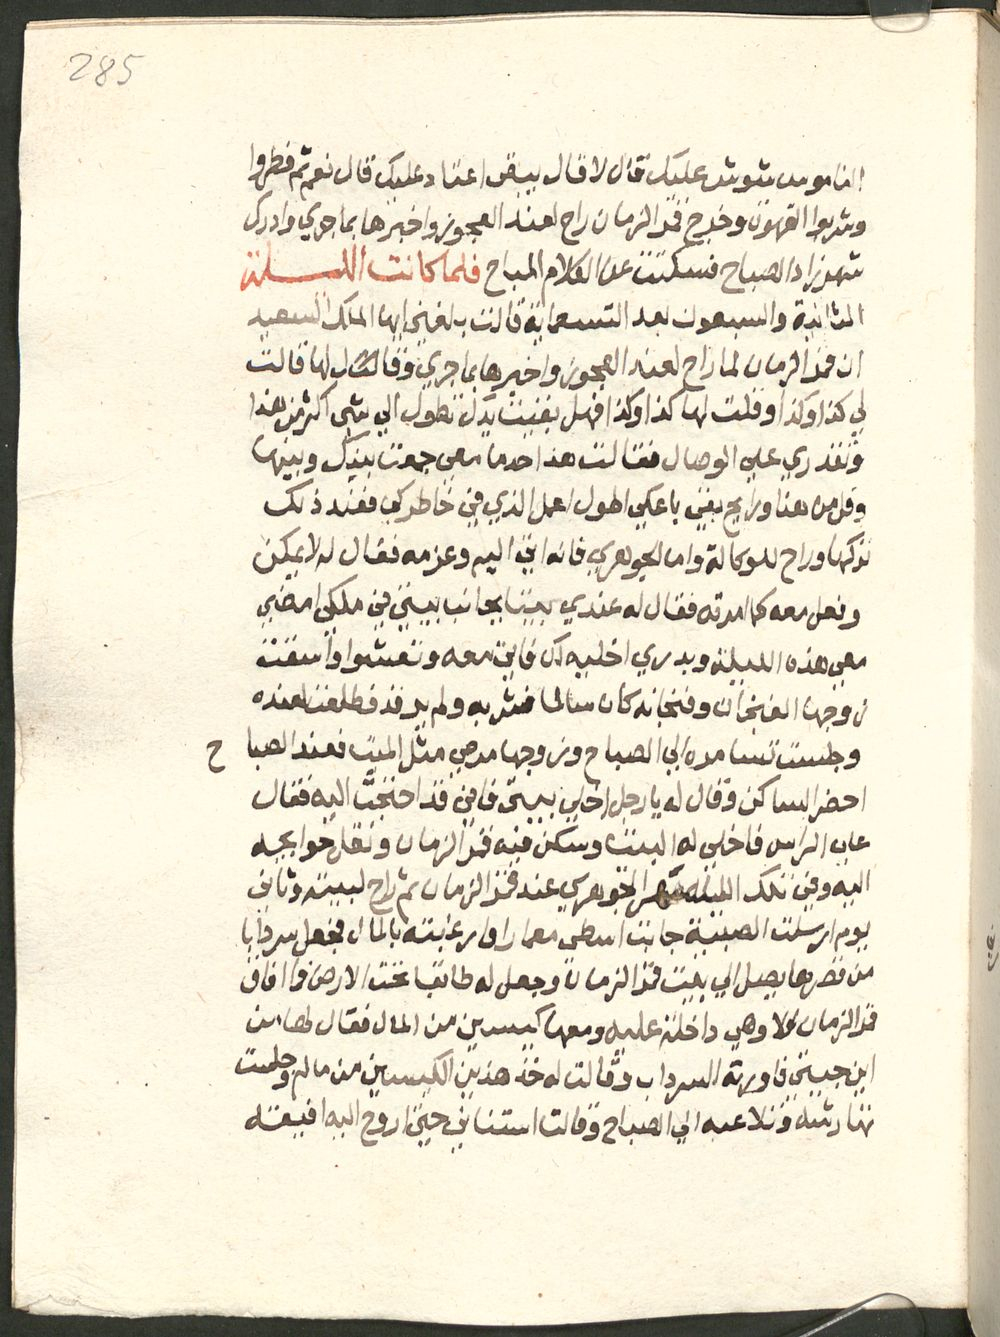 285
الناموس شوش عليك قال لا قال يبقى اعتاد عليك قال نعم ثم فطروا
وشربوا القهوة وخرج قمر الزمان راح لعند العجوز واخبرها بما جري وادرك
شهرزاد الصباح فسكتت عن الكلام المباح فلما كانت الليلة
الثانية والسبعون بعد التسعماية قالت بلغني ايها الملك السعيد
ان قمر الزمان لما راح لعند العجوز واخبرها بما جري وقال لها قالت
لي كذا وكذا وقلت لها كذا وكذا فهل بقيت يدك تطول الي شي اكثر من هذا
وتقدري علي الوصال فقالت هذا حد ما معي جمعت بينك وبينها
وقل من هنا ورايح بقي باعكي اطول اعمل الذي في خاطرك فعند ذلك
تركها وراح للوكالة واما الجوهري فانه اتي اليه وعزمه فقال له لا يمكن
وفعل معه كما امرته فقال له عندي بيتا بجانب بيتي في ملكي امضي
معي هذه الليلة وبدري اخليه لك فاتي معه وتعشوا واسقت
زوجها الفنجان وفنجانه كان سالما فشربه ولم يرقد فطلعت لعنده
وجلست تسامره الي الصباح وزوجها مرمي مثل الميت فعند الصباح
احضر الساكن وقال له يا رجل اخلي بيتي فاني قد احتجت اليه فقال
علي الراس فاخلي له البيت وسكن فيه قمر الزمان ونقل حوايجه
اليه وفي تلك الليلة سهر الجوهري عند قمر الزمان ثم راح لبيته وثاني
يوم ارسلت الصبية جابت اسطي معمارا وارغبته بالمال فجعل سردابا
من قصرها يصل الي بيت قمر الزمان وجعل له طابقا تحت الارض فما افاق
قمر الزمان الا وهي داخلة عليه ومعها كيسين من المال فقال لها من
اين جيتي فاورته السرداب وقالت له خذ هذين الكيسين من ماله وجلست
تهارشه وتلاعبه الي الصباح وقالت استناني حتي اروح اليه افيقه